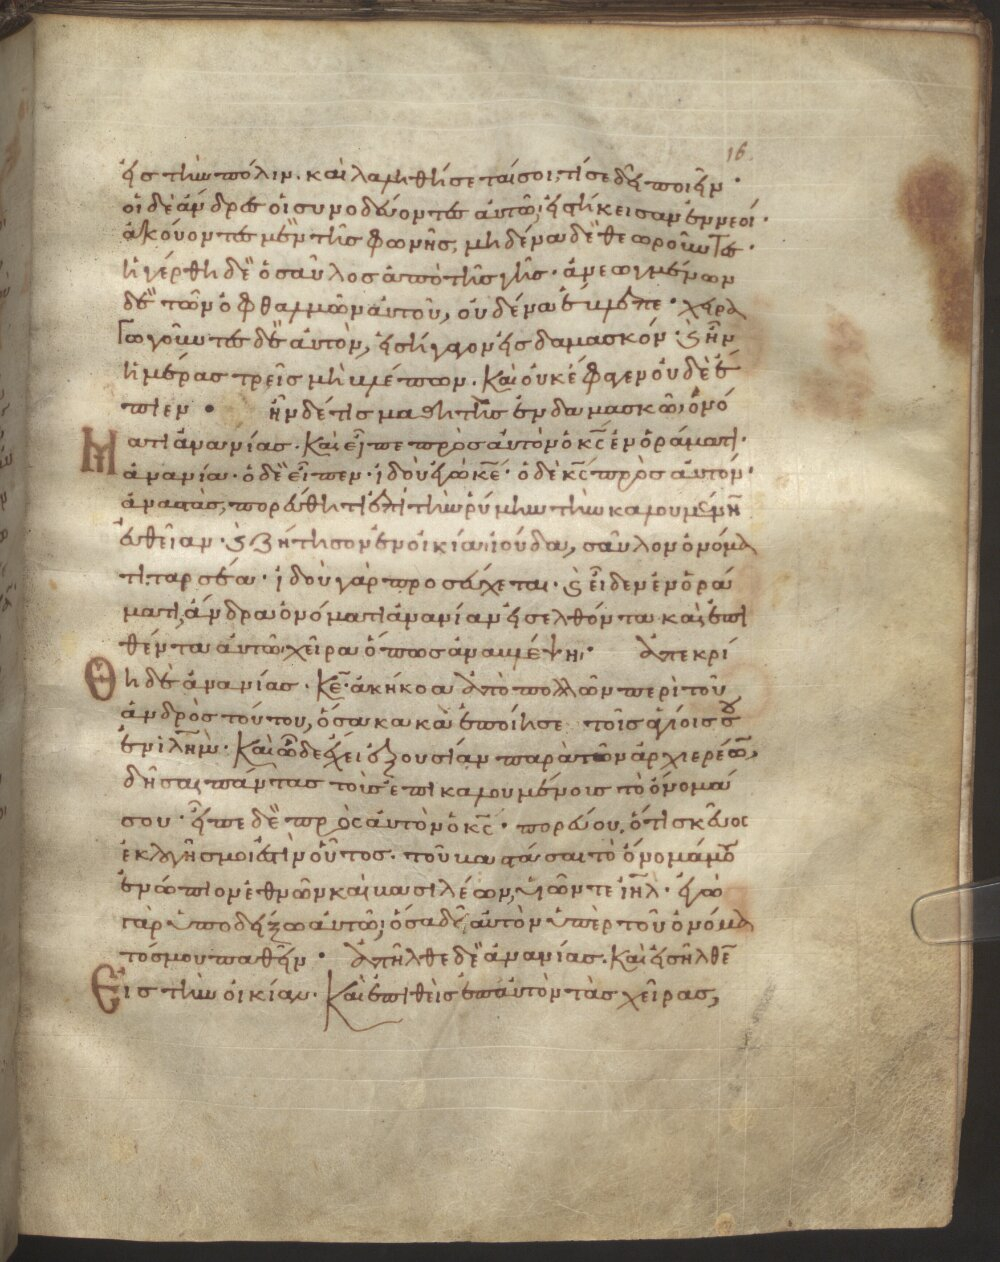 16
εἰς τὴν πόλιν· καὶ λαληθήσεταί σοι, τί σε δεῖ ποιεῖν·
οἱ δὲ ἄνδρες οἱ συνοδεύοντες αὐτῶ, εἱστήκεισαν ἐννεοί·
ἀκούοντες μὲν τῆς φωνῆς, μηδένα δὲ θεωροῦντες·
ἠγέρθη δὲ ὁ σαῦλος ἀπὸ τῆς γῆς· ἀνεωγμένων
δὲ τῶν ὀφθαλμῶν αὐτοῦ, οὐδένα ἔβλεπε· χειρα
γωγοῦντες δὲ αὐτὸν, εἰσήγαγον εἰς δαμασκόν· ϗ ἦν
ἡμέρας τρεῖς μὴ βλέπων. Καὶ οὐκ ἔφαγεν οὐδὲ ἔ
πιεν • ἦν δέ τις μαθητὴς ἐν δαμασκῶ, ὀνό
Ματι ἀνανίας· Καὶ εἶπε πρὸς αὐτὸν ὁ κς ἐν ὁράματι·
ἀνανία· ὁ δὲ εἶπεν· ἰδοὺ ἐγὼ κε· ὁ δὲ κς πρὸς αὐτόν·
ἀναστὰς, πορεύθητι ἐπὶ τὴν ῥύμην τὴν καλουμένην
εὐθεῖαν· ϗ ζήτησον ἐν οἰκία ἰούδα, σαῦλον ὀνόμα
τι ταρσέα· ἰδοὺ γὰρ προσεύχεται· ϗ εἶδεν ἐν ὁρά
ματι, ἄνδρα ὀνόματι ἀνανίαν εἰσελθόντα καὶ ἐπι
θέντα αὐτῶ χεῖρα ὅπως ἀναβλέψη· Ἀπεκρί
Θη δὲ ἀνανίας· Κε· ἀκήκοα ἀπὸ πολλῶν περὶ τοῦ
ἀνδρὸς τούτου, ὅσα κακὰ ἐποίησε τοῖς ἁγίοις σου
ἐν ιλημ· Καὶ ὧδε ἔχει ἐξουσίαν παρὰ τῶν ἀρχιερέων,
δῆσαι πάντας τοὺς ἐπικαλουμένους τὸ ὄνομά
σου· εἶπε δὲ πρὸς αὐτὸν ὁ κς· πορεύου, ὅτι σκεῦος
ἐκλογῆς μοι ἐστὶν οὗτος· τοῦ βαστάσαι τὸ ὄνομά μου
ἐνώπιον ἐθνῶν καὶ βασιλέων, υἱῶν τε ιηλ· ἐγὼ
γὰρ ὑποδείξω αὐτῶ, ὅσα δεῖ αὐτὸν ὑπὲρ τοῦ ὀνόμα
τός μου παθεῖν· Ἀπῆλθε δὲ ἀνανίας· Καὶ εἰσῆλθεν
Εἰς τὴν οἰκίαν· Καὶ ἐπιθεὶς ἐπ' αὐτὸν τὰς χεῖρας,